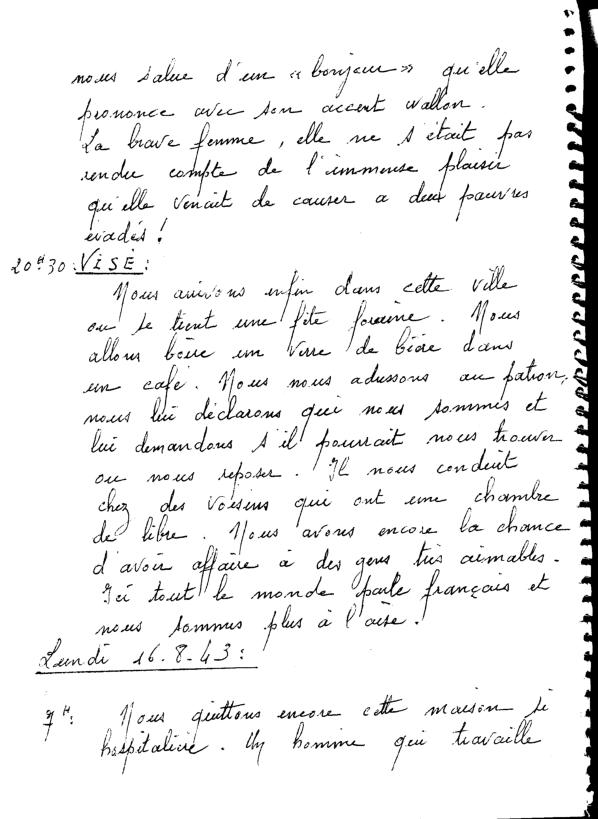 nous salue d'un « bonjour » qu'elle
prononce avec son accent wallon.
La brave femme, elle ne s'était pas
rendu compte de l'immense plaisir
qu'elle venait de causer a deux pauvres
évadés !
20H30 : VISÉ :
Nous arrivons enfin dans cette ville
ou se tient une fête foraine. Nous
allons boire un verre de bière dans
un café. Nous nous adressons au patron,
nous lui déclarons qui nous sommes et
lui demandons s'il pourrait nous trouver
ou nous reposer. Il nous conduit
chez des voisens qui ont une chambre
de libre. Nous avons encore la chance
d'avoir affaire à des gens très aimables.
Ici tout le monde parle français et
nous sommes plus à l'aise.
Lundi 16.8.43 :
7H : Nous quittons encore cette maison si
hospitalière. Un homme qui travaille